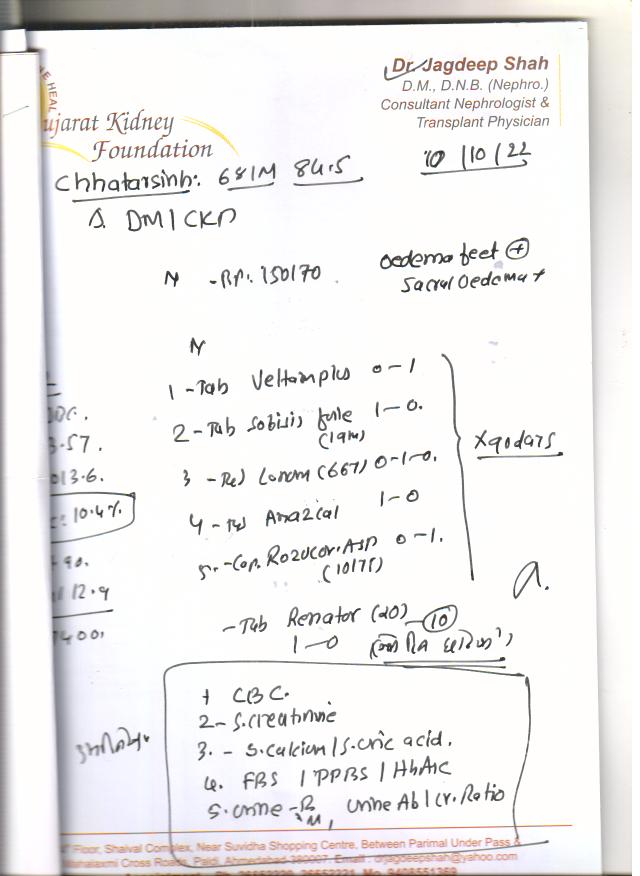 HE HEAL
ujarat Kidney
Foundation
Dr. Jagdeep Shah
D.M., D.N.B. (Nephro.)
Consultant Nephrologist &
Transplant Physician
10/10/22
Chhatarsinh. 68/M 84.5
Δ DM/CKD
N - BP: 150/70
oedema feet (+)
Sacral Oedema +
1 - Tab 0-1
2 - Tab Sobisis forte 1-0.
(1gm)
3 - (667) 0-1-0.
4 - 1-0
5. - Cap. Rozucor. Asp 0-1.
(10/75)
x90days
- Tab (20) - (10)
1-0
.57.
013.6.
: 10.4%
90.
12.9
1 CBC.
2 - S.creatinine
3. - S.calcium/S.uric acid.
4. FBS / PPBS / HbA1c
5. urine - R/M, urine Ab/cr. Ratio
Floor, Shaival Complex, Near Suvidha Shopping Centre, Between Parimal Under Pass &
Mahalaxmi Cross Roads, Paldi, Ahmedabad-380007. Email : drjagdeepshah@yahoo.com